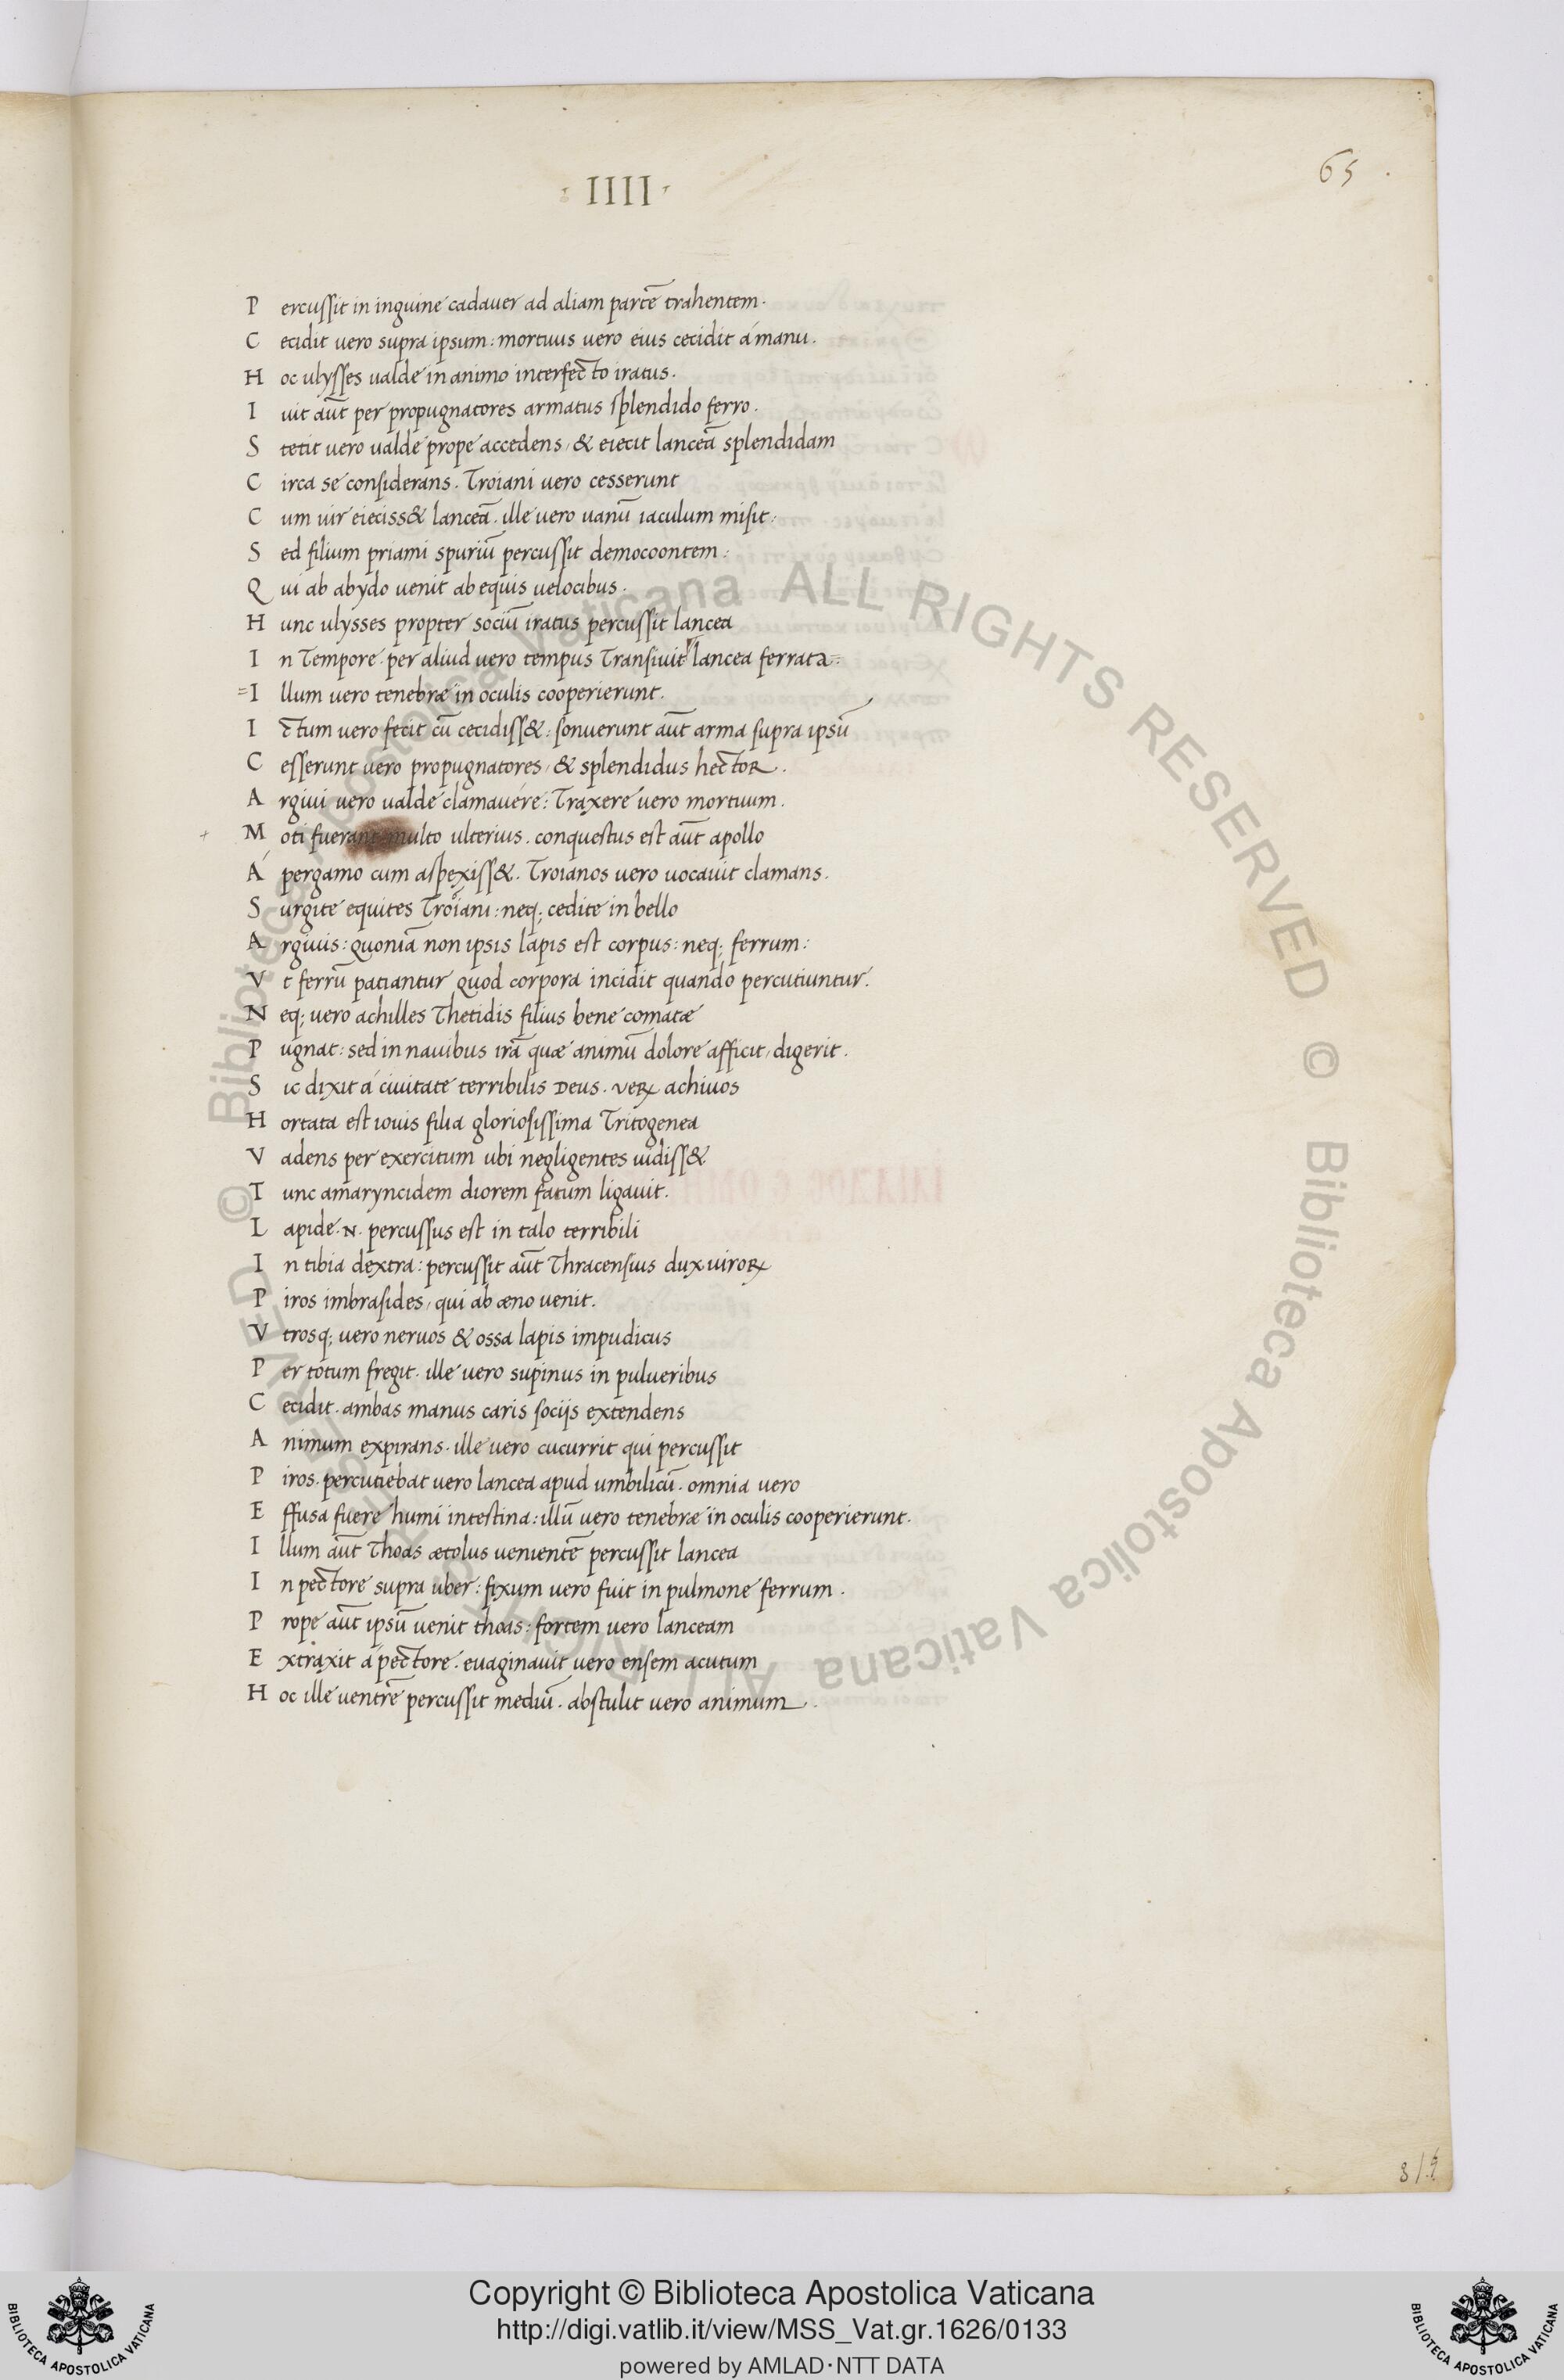 · IIII ·
65
Percussit in inguine cadauer ad aliam partē trahentem.
Cecidit uero supra ipsum: mortuus uero eius cecidit á manu.
Hoc ulysses ualde in animo interfecto iratus.
Iuit aūt per propugnatores armatus splendido ferro.
Stetit uero ualde prope accedens, & eiecit lanceā splendidam
Circa se considerans. Troiani uero cesserunt
Cum uir eieciss& lanceā. ille uero uanū iaculum misit:
Sed filium priami spuriū percussit democoontem:
Qui ab abydo uenit ab equis uelocibus.
Hunc ulysses propter sociū iratus percussit lancea
In Tempore. per aliud uero tempus Transiuit lancea ferrata:
=Illum uero tenebræ in oculis cooperierunt.
Ictum uero fecit cū cecidiss&: sonuerunt aūt arma supra ipsū
Cesserunt uero propugnatores, & splendidus hector.
Argiui uero ualde clamauére: Traxere uero mortuum.
+ Moti fuerant multo ulterius. conquestus est aūt apollo
Á pergamo cum aspexiss&. Troianos uero uocauit clamans.
Surgite equites Troiani: neq; cedite in bello
Argiuis: quoniā non ipsis lapis est corpus: neq; ferrum:
Vt ferrū patiantur quod corpora incidit quando percutiuntur.
Neq; uero achilles Thetidis filius bene comatæ
Pugnat: sed in nauibus irā quæ animū dolore afficit, digerit.
Sic dixit á ciuitate terribilis Deus. veꝝ achiuos
Hortata est iouis filia gloriosissima Tritogenea
Vadens per exercitum ubi negligentes uidiss&
Tunc amaryncidem diorem fatum ligauit.
Lapide .N. percussus est in talo terribili
In tibia dextra: percussit aūt Thracensius dux uiroꝝ
Piros imbrasides, qui ab æno uenit.
Vtrosq; uero neruos & ossa lapis impudicus
Per totum fregit. ille uero supinus in pulueribus
Cecidit. ambas manus caris socijs extendens
Animum expirans. ille uero cucurrit qui percussit
Piros. percutiebat uero lancea apud umbilicū. omnia uero
Effusa fuere humi intestina: illū uero tenebræ in oculis cooperierunt.
Illum aūt Thoas ætolus uenientē percussit lancea
In pectore supra uber: fixum uero fuit in pulmone ferrum.
Prope aūt ipsū uenit thoas: fortem uero lanceam
Extraxit á pectore. euaginauit uero ensem acutum
Hoc ille uentrē percussit mediū. abstulit uero animum.
© Biblioteca Apostolica Vaticana ALL RIGHTS RESERVED © Biblioteca Apostolica Vaticana ALL RIGHTS RESERVED
Copyright © Biblioteca Apostolica Vaticana
http://digi.vatlib.it/view/MSS_Vat.gr.1626/0133
powered by AMLAD·NTT DATA
BIBLIOTECA APOSTOLICA VATICANA
BIBLIOTECA APOSTOLICA VATICANA